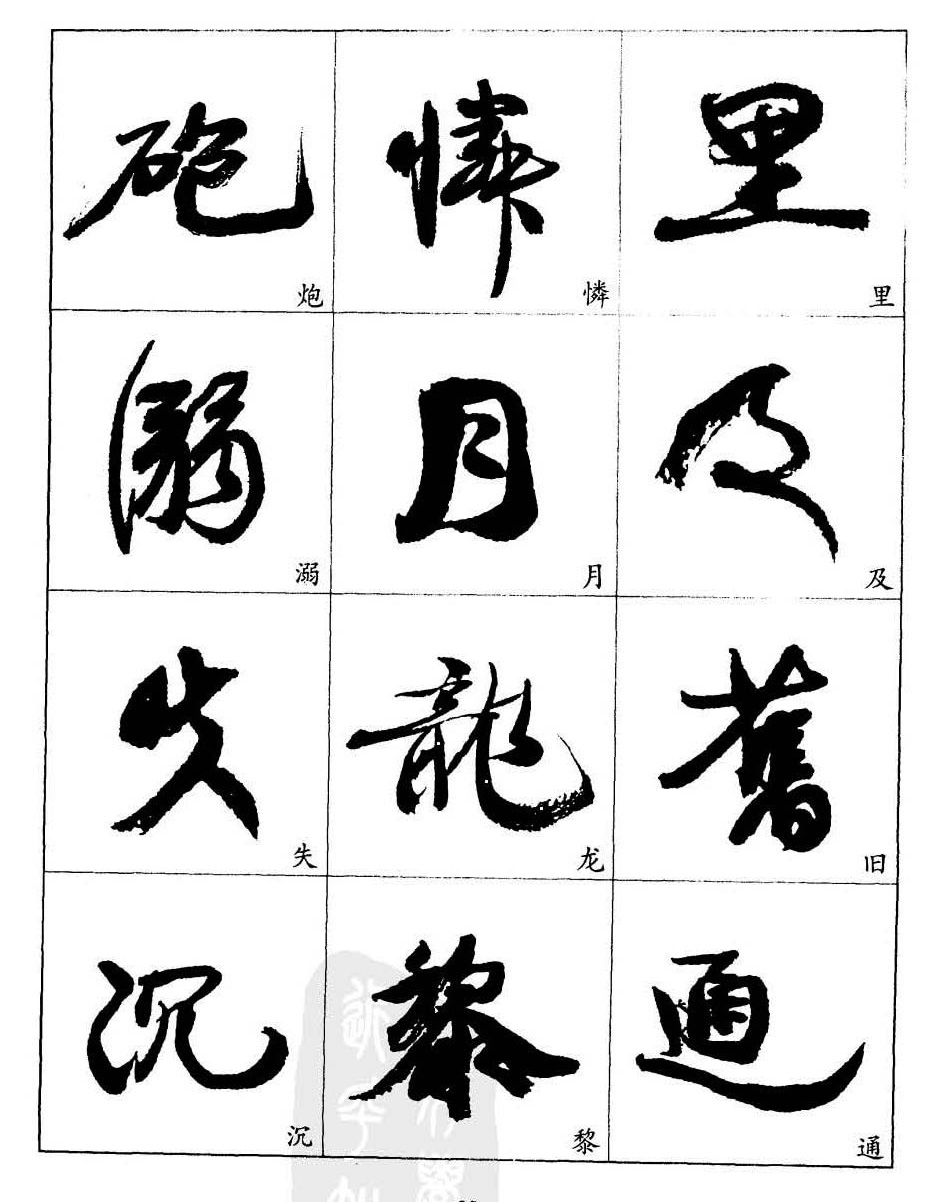 砲 憐 里
炮 憐 里
溺 月 及
溺 月 及
失 龍 舊
失 龙 旧
沉 黎 通
沉 黎 通